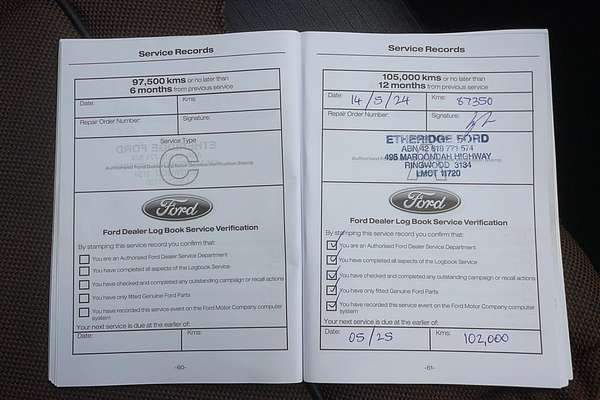 Service Records
97,500 kms or no later than
6 months from previous service
Date:
Kms:
Repair Order Number:
Signature:
Service Type
C
Authorised Ford Dealer Service Verification Stamp
Ford
Ford Dealer Log Book Service Verification
By stamping this service record you confirm that:
You are an Authorised Ford Dealer Service Department
You have completed all aspects of the Logbook Service
You have checked and completed any outstanding campaign or recall actions
You have only fitted Genuine Ford Parts
You have recorded this service event on the Ford Motor Company computer
system
Your next service is due at the earlier of:
Date:
Kms:
-60-
Service Records
105,000 kms or no later than
12 months from previous service
Date: 14/5/24
Kms: 87350
Repair Order Number:
Signature:
ETHERIDGE FORD
ABN 42 618 771 574
495 MAROONDAH HIGHWAY
RINGWOOD 3134
LMCT 11720
Ford
Ford Dealer Log Book Service Verification
By stamping this service record you confirm that:
You are an Authorised Ford Dealer Service Department
You have completed all aspects of the Logbook Service
You have checked and completed any outstanding campaign or recall actions
You have only fitted Genuine Ford Parts
You have recorded this service event on the Ford Motor Company computer
system
Your next service is due at the earlier of:
Date: 05/25
Kms: 102,000
-61-